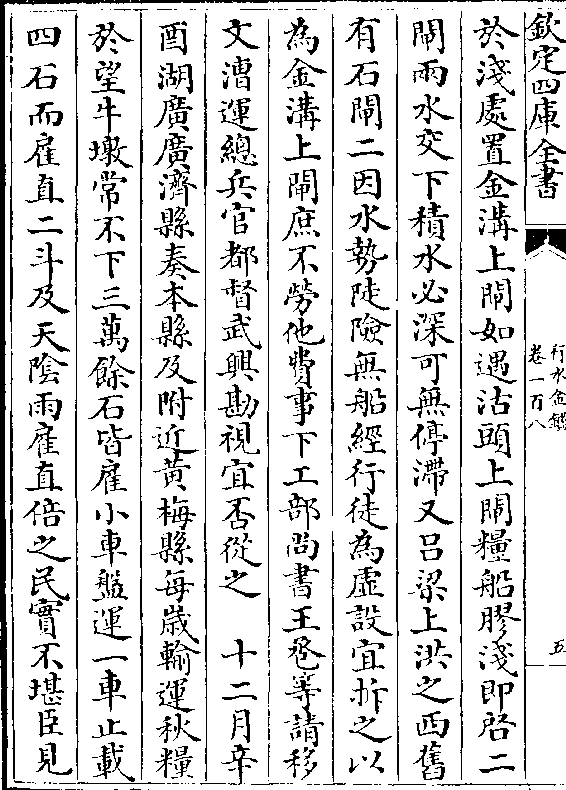 欽定四庫全書
行水金鑑
卷一百八
五
於淺處置金溝上閘如遇沽頭上閘糧船膠淺即啓二
閘兩水交下積水必深可無停滯又吕梁上洪之西舊
有石閘二因水勢陡險無船經行徒為虚設宜拆之以
為金溝上閘庶不勞他費事下工部尚書王巹等請移
文漕運總兵官都督武興勘視宜否從之　十二月辛
酉湖廣廣濟縣奏本縣及附近黄梅縣每歲輸運秋糧
於望牛墩常不下三萬餘石皆雇小車盤運一車止載
四石而雇直二斗及天陰雨雇直倍之民實不堪臣見